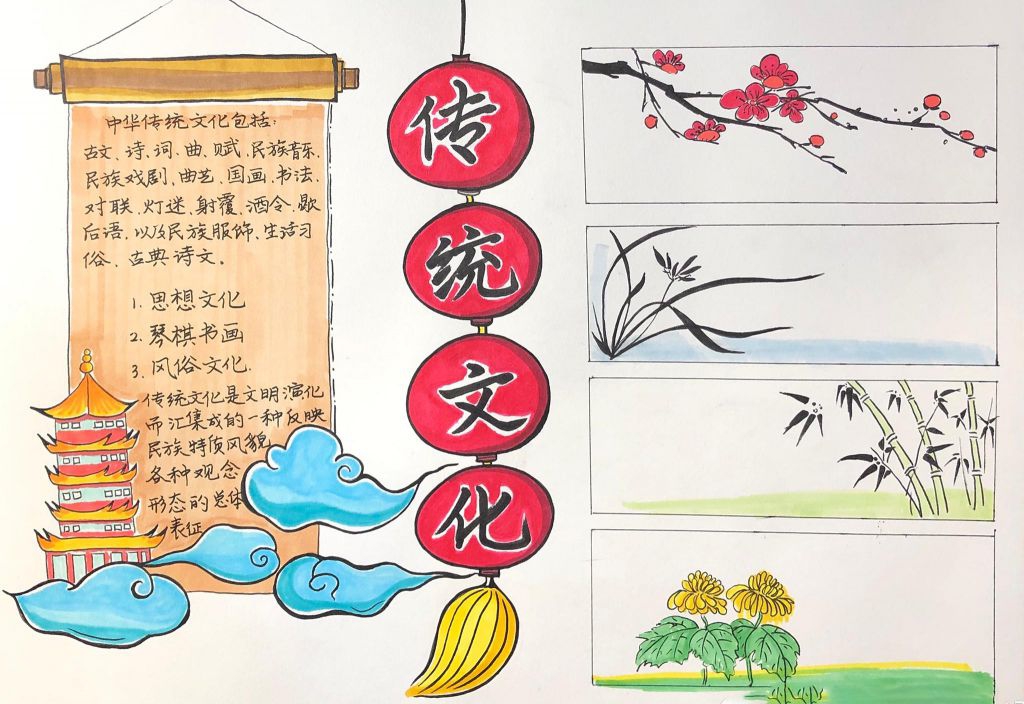 中华传统文化包括:
古文、诗、词、曲、赋、民族音乐、
民族戏剧、曲艺、国画、书法、
对联、灯迷、射覆、酒令、歇
后语、以及民族服饰、生活习
俗、古典诗文。
1. 思想文化
2. 琴棋书画
3. 风俗文化.
传统文化是文明演化
而汇集成的一种反映
民族特质风貌
各种观念
形态的总体
表征
传
统
文
化